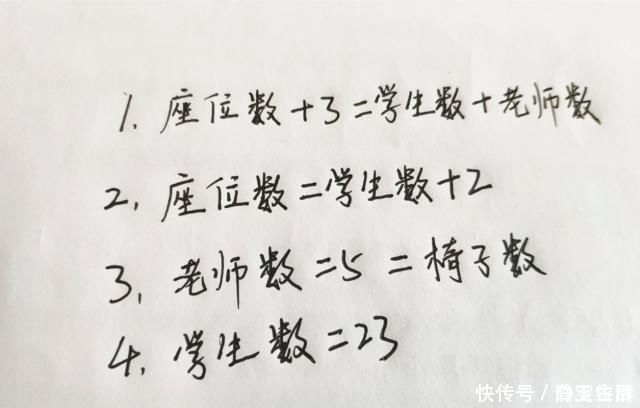 1. 座位数+3=学生数+老师数
2. 座位数=学生数+2
3. 老师数=5=椅子数
4. 学生数=23
快传号/